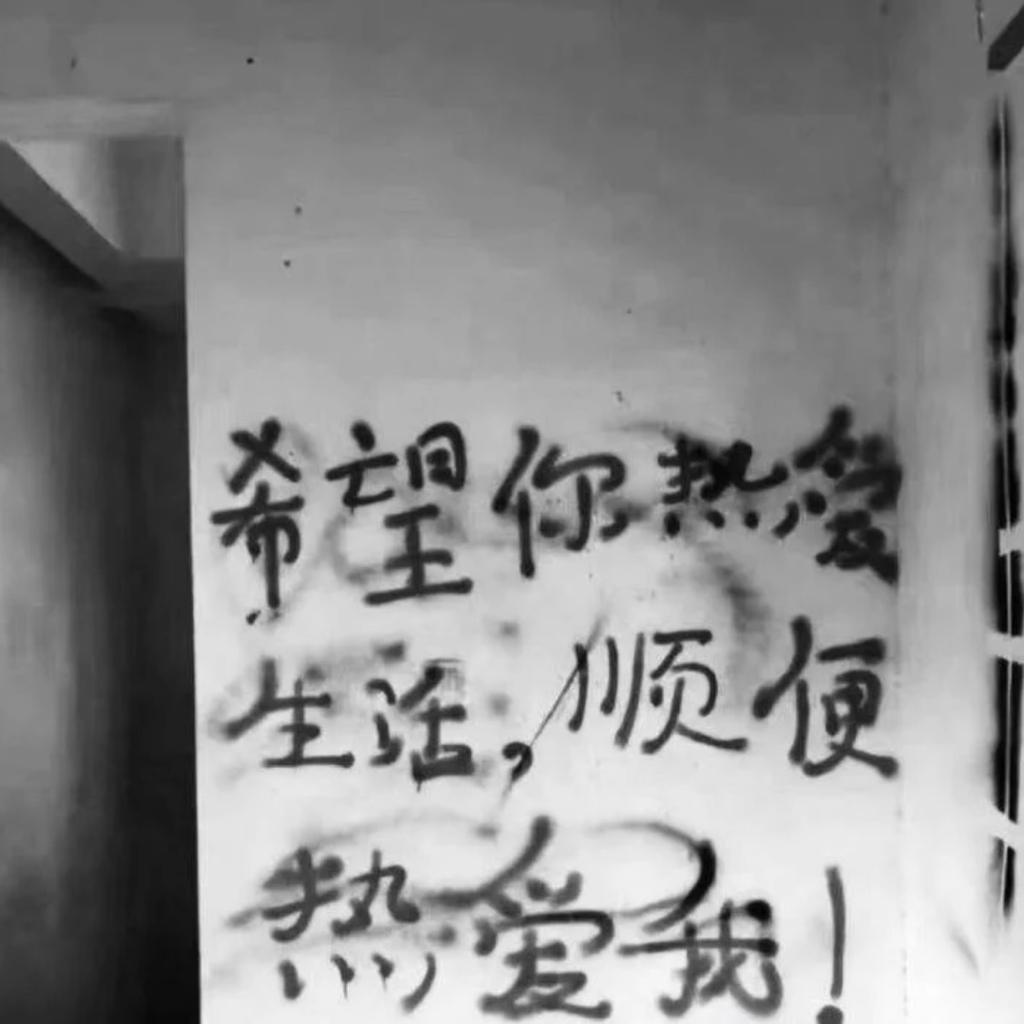 希望你热爱
生活，顺便
热爱我！